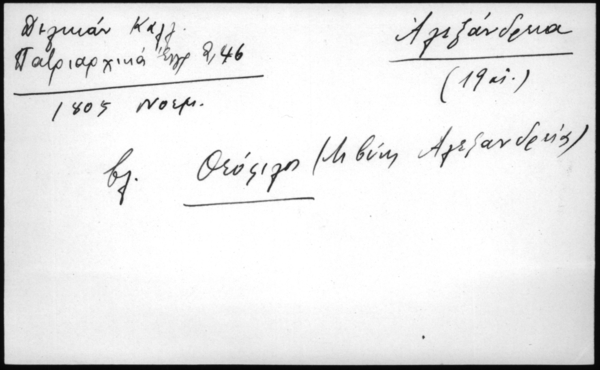 Δελικάν Καλλ.
Πατριαρχικά Έγγρ 2,46
1805 Νοεμ.
Αλεξάνδρεια
(19 αι.)
βλ. Θεόφιλος (Λιβύης Αλεξανδρείας)